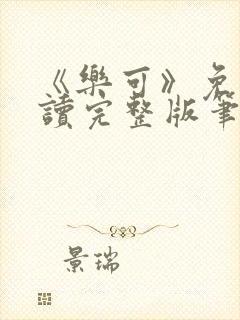 《樂可》免
讀完整版筆
景瑞